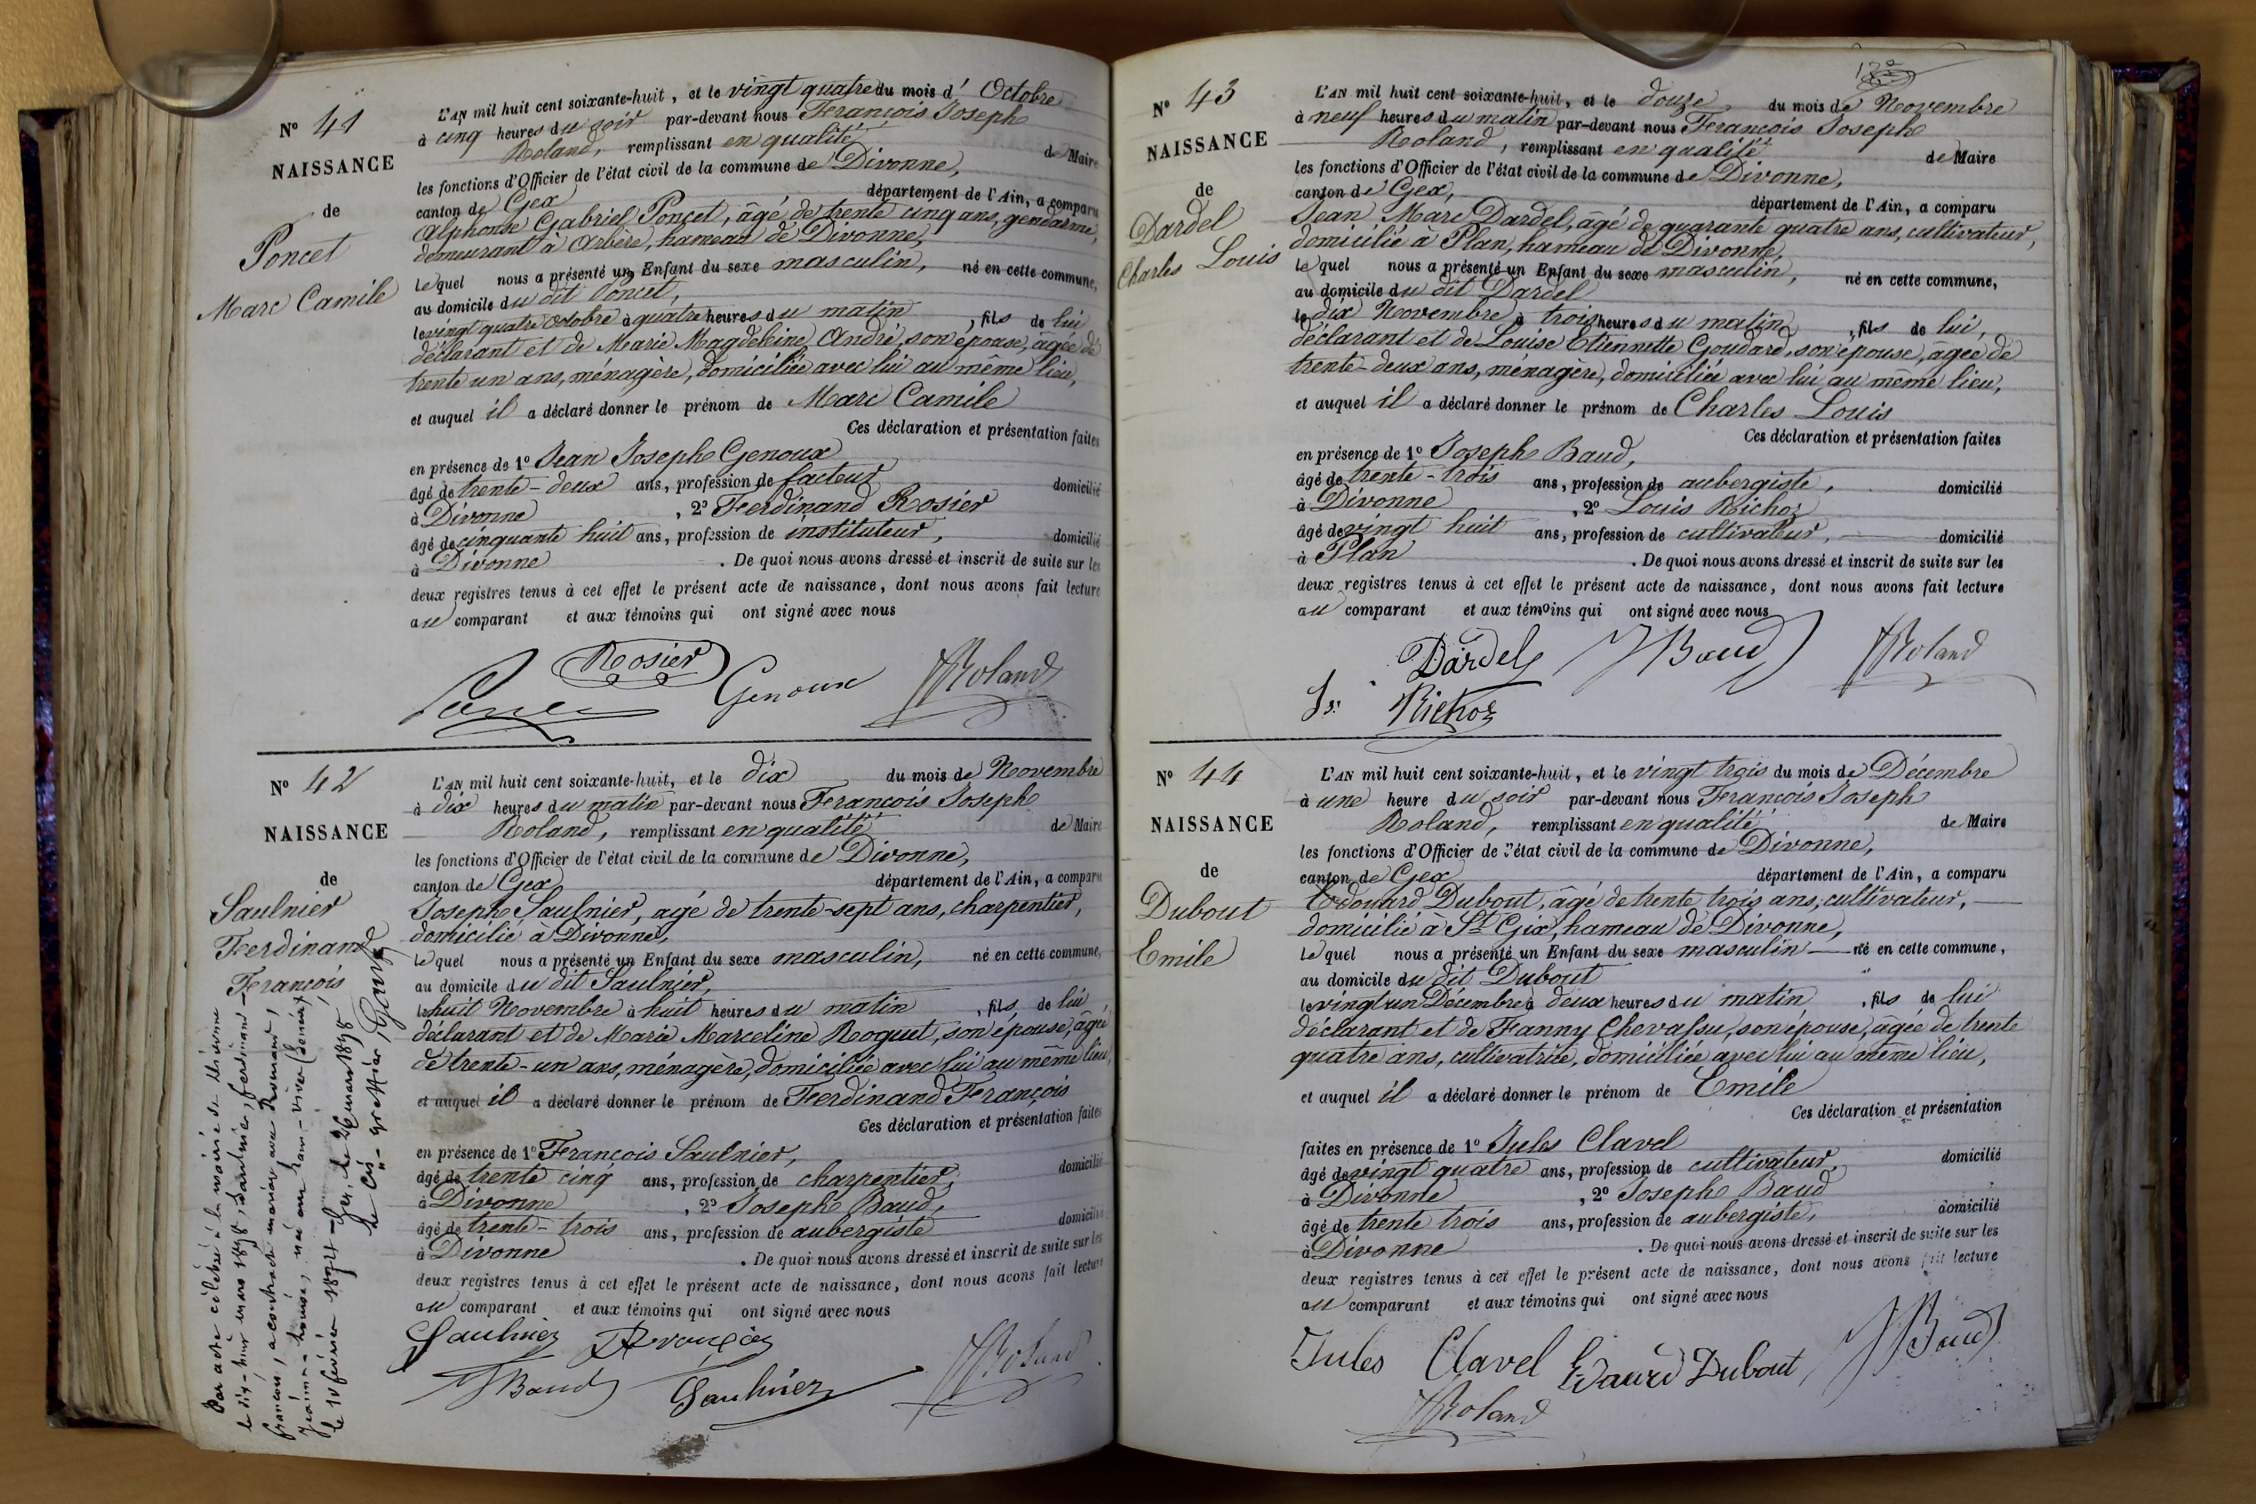 N° 41
NAISSANCE
de
Poncet
Marc Camile
L'AN mil huit cent soixante-huit, et le vingt quatre du mois d' Octobre
à cinq heures du soir par-devant nous François Joseph
Roland, remplissant en qualité de Maire
les fonctions d'Officier de l'état civil de la commune de Divonne,
canton de Gex département de l'Ain, a comparu
Alphonse Gabriel Poncet, âgé de trente cinq ans, gendarme,
demeurant à Arbère, hameau de Divonne,
lequel nous a présenté un Enfant du sexe masculin, né en cette commune,
au domicile du dit Poncet,
le vingt quatre Octobre à quatre heures du matin, fils de lui
déclarant et de Marie Magdeleine André, son épouse, âgée de
trente un ans, ménagère, domiciliée avec lui au même lieu,
et auquel il a déclaré donner le prénom de Marc Camile
Ces déclaration et présentation faites
en présence de 1° Jean Joseph Genoux
âgé de trente-deux ans, profession de facteur domicilié
à Divonne, 2° Ferdinand Rosier
âgé de cinquante huit ans, profession de instituteur, domicilié
à Divonne. De quoi nous avons dressé et inscrit de suite sur les
deux registres tenus à cet effet le présent acte de naissance, dont nous avons fait lecture
au comparant et aux témoins qui ont signé avec nous
Rosier
Poncet Genoux JRoland
N° 42
NAISSANCE
de
Saulnier
Ferdinand
François
L'AN mil huit cent soixante-huit, et le dix du mois de Novembre
à dix heures du matin par-devant nous François Joseph
Roland, remplissant en qualité de Maire
les fonctions d'Officier de l'état civil de la commune de Divonne,
canton de Gex département de l'Ain, a comparu
Joseph Saulnier, agé de trente-sept ans, charpentier,
domicilié à Divonne,
lequel nous a présenté un Enfant du sexe masculin, né en cette commune,
au domicile du dit Saulnier,
le huit Novembre à huit heures du matin, fils de lui
déclarant et de Marie Marceline Roquet, son épouse, âgée
de trente-un ans, ménagère, domiciliée avec lui au même lieu,
et auquel il a déclaré donner le prénom de Ferdinand François
Ces déclaration et présentation faites
en présence de 1° François Saulnier,
âgé de trente cinq ans, profession de charpentier, domicilié
à Divonne, 2° Joseph Baud,
âgé de trente-trois ans, profession de aubergiste domicilié
à Divonne. De quoi nous avons dressé et inscrit de suite sur les
deux registres tenus à cet effet le présent acte de naissance, dont nous avons fait lecture
au comparant et aux témoins qui ont signé avec nous
Saulnier François
JBaud Saulnier JRoland
Par acte célébré à la mairie de Divonne
le dix-huit mars 1898, Saulnier, Ferdinand-
François, a contracté mariage avec Romand,
Jeanne-Louise, née
le 10 février 1874 - Gex, le 26 mars 1898,
le Cis-greffier,
N° 43
NAISSANCE
de
Dardel
Charles Louis
L'AN mil huit cent soixante-huit, et le douze du mois de Novembre
à neuf heures du matin par-devant nous François Joseph
Roland, remplissant en qualité de Maire
les fonctions d'Officier de l'état civil de la commune de Divonne,
canton de Gex, département de l'Ain, a comparu
Jean Marc Dardel, âgé de quarante quatre ans, cultivateur,
domicilié à Plan, hameau de Divonne,
lequel nous a présenté un Enfant du sexe masculin, né en cette commune,
au domicile du dit Dardel
le dix Novembre à trois heures du matin, fils de lui,
déclarant et de Louise Etiennette Goudard, son épouse, âgée de
trente-deux ans, ménagère, domiciliée avec lui au même lieu,
et auquel il a déclaré donner le prénom de Charles Louis
Ces déclaration et présentation faites
en présence de 1° Joseph Baud,
âgé de trente-trois ans, profession de aubergiste, domicilié
à Divonne, 2° Louis Richoz
âgé de vingt huit ans, profession de cultivateur, domicilié
à Plan. De quoi nous avons dressé et inscrit de suite sur les
deux registres tenus à cet effet le présent acte de naissance, dont nous avons fait lecture
au comparant et aux témoins qui ont signé avec nous
Dardel JBaud JRoland
Richoz
N° 44
NAISSANCE
de
Dubout
Emile
L'AN mil huit cent soixante-huit, et le vingt trois du mois de Décembre
à une heure du soir par-devant nous François Joseph
Roland, remplissant en qualité de Maire
les fonctions d'Officier de l'état civil de la commune de Divonne,
canton de Gex département de l'Ain, a comparu
Edouard Dubout, âgé de trente trois ans, cultivateur,
domicilié à St Gix, hameau de Divonne,
lequel nous a présenté un Enfant du sexe masculin né en cette commune,
au domicile du dit Dubout
le vingt un Décembre à deux heures du matin, fils de lui
déclarant et de Fanny Chevassu, son épouse, âgée de trente
quatre ans, cultivatrice, domiciliée avec lui au même lieu,
et auquel il a déclaré donner le prénom de Emile
Ces déclaration et présentation
faites en présence de 1° Jules Clavel
âgé de vingt quatre ans, profession de cultivateur, domicilié
à Divonne, 2° Joseph Baud
âgé de trente trois ans, profession de aubergiste, domicilié
à Divonne. De quoi nous avons dressé et inscrit de suite sur les
deux registres tenus à cet effet le présent acte de naissance, dont nous avons fait lecture
au comparant et aux témoins qui ont signé avec nous
Jules Clavel Edouard Dubout JBaud
JRoland